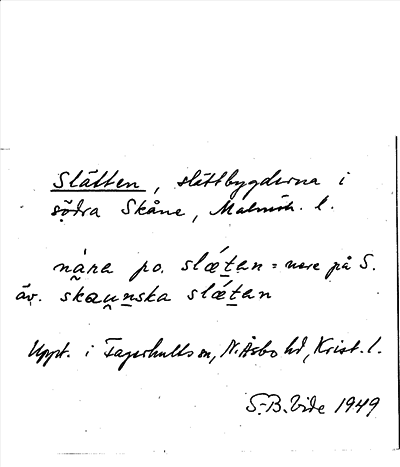 Slätten, slättbygderna i
södra Skåne, Malmöh. l.
nàra po. slǽtan = nere på S.
äv. skaunska slǽtan
Uppt. i Fagerhults sn, N. Åsbo hd, Krist. l.
S.-B. Vide 1949